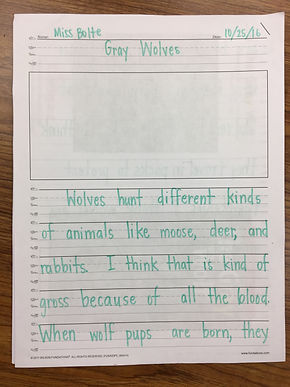 Name: Miss Bolte Date: 10/25/16
Gray Wolves
Wolves hunt different kinds
of animals like moose, deer, and
rabbits. I think that is kind of
gross because of all the blood.
When wolf pups are born, they